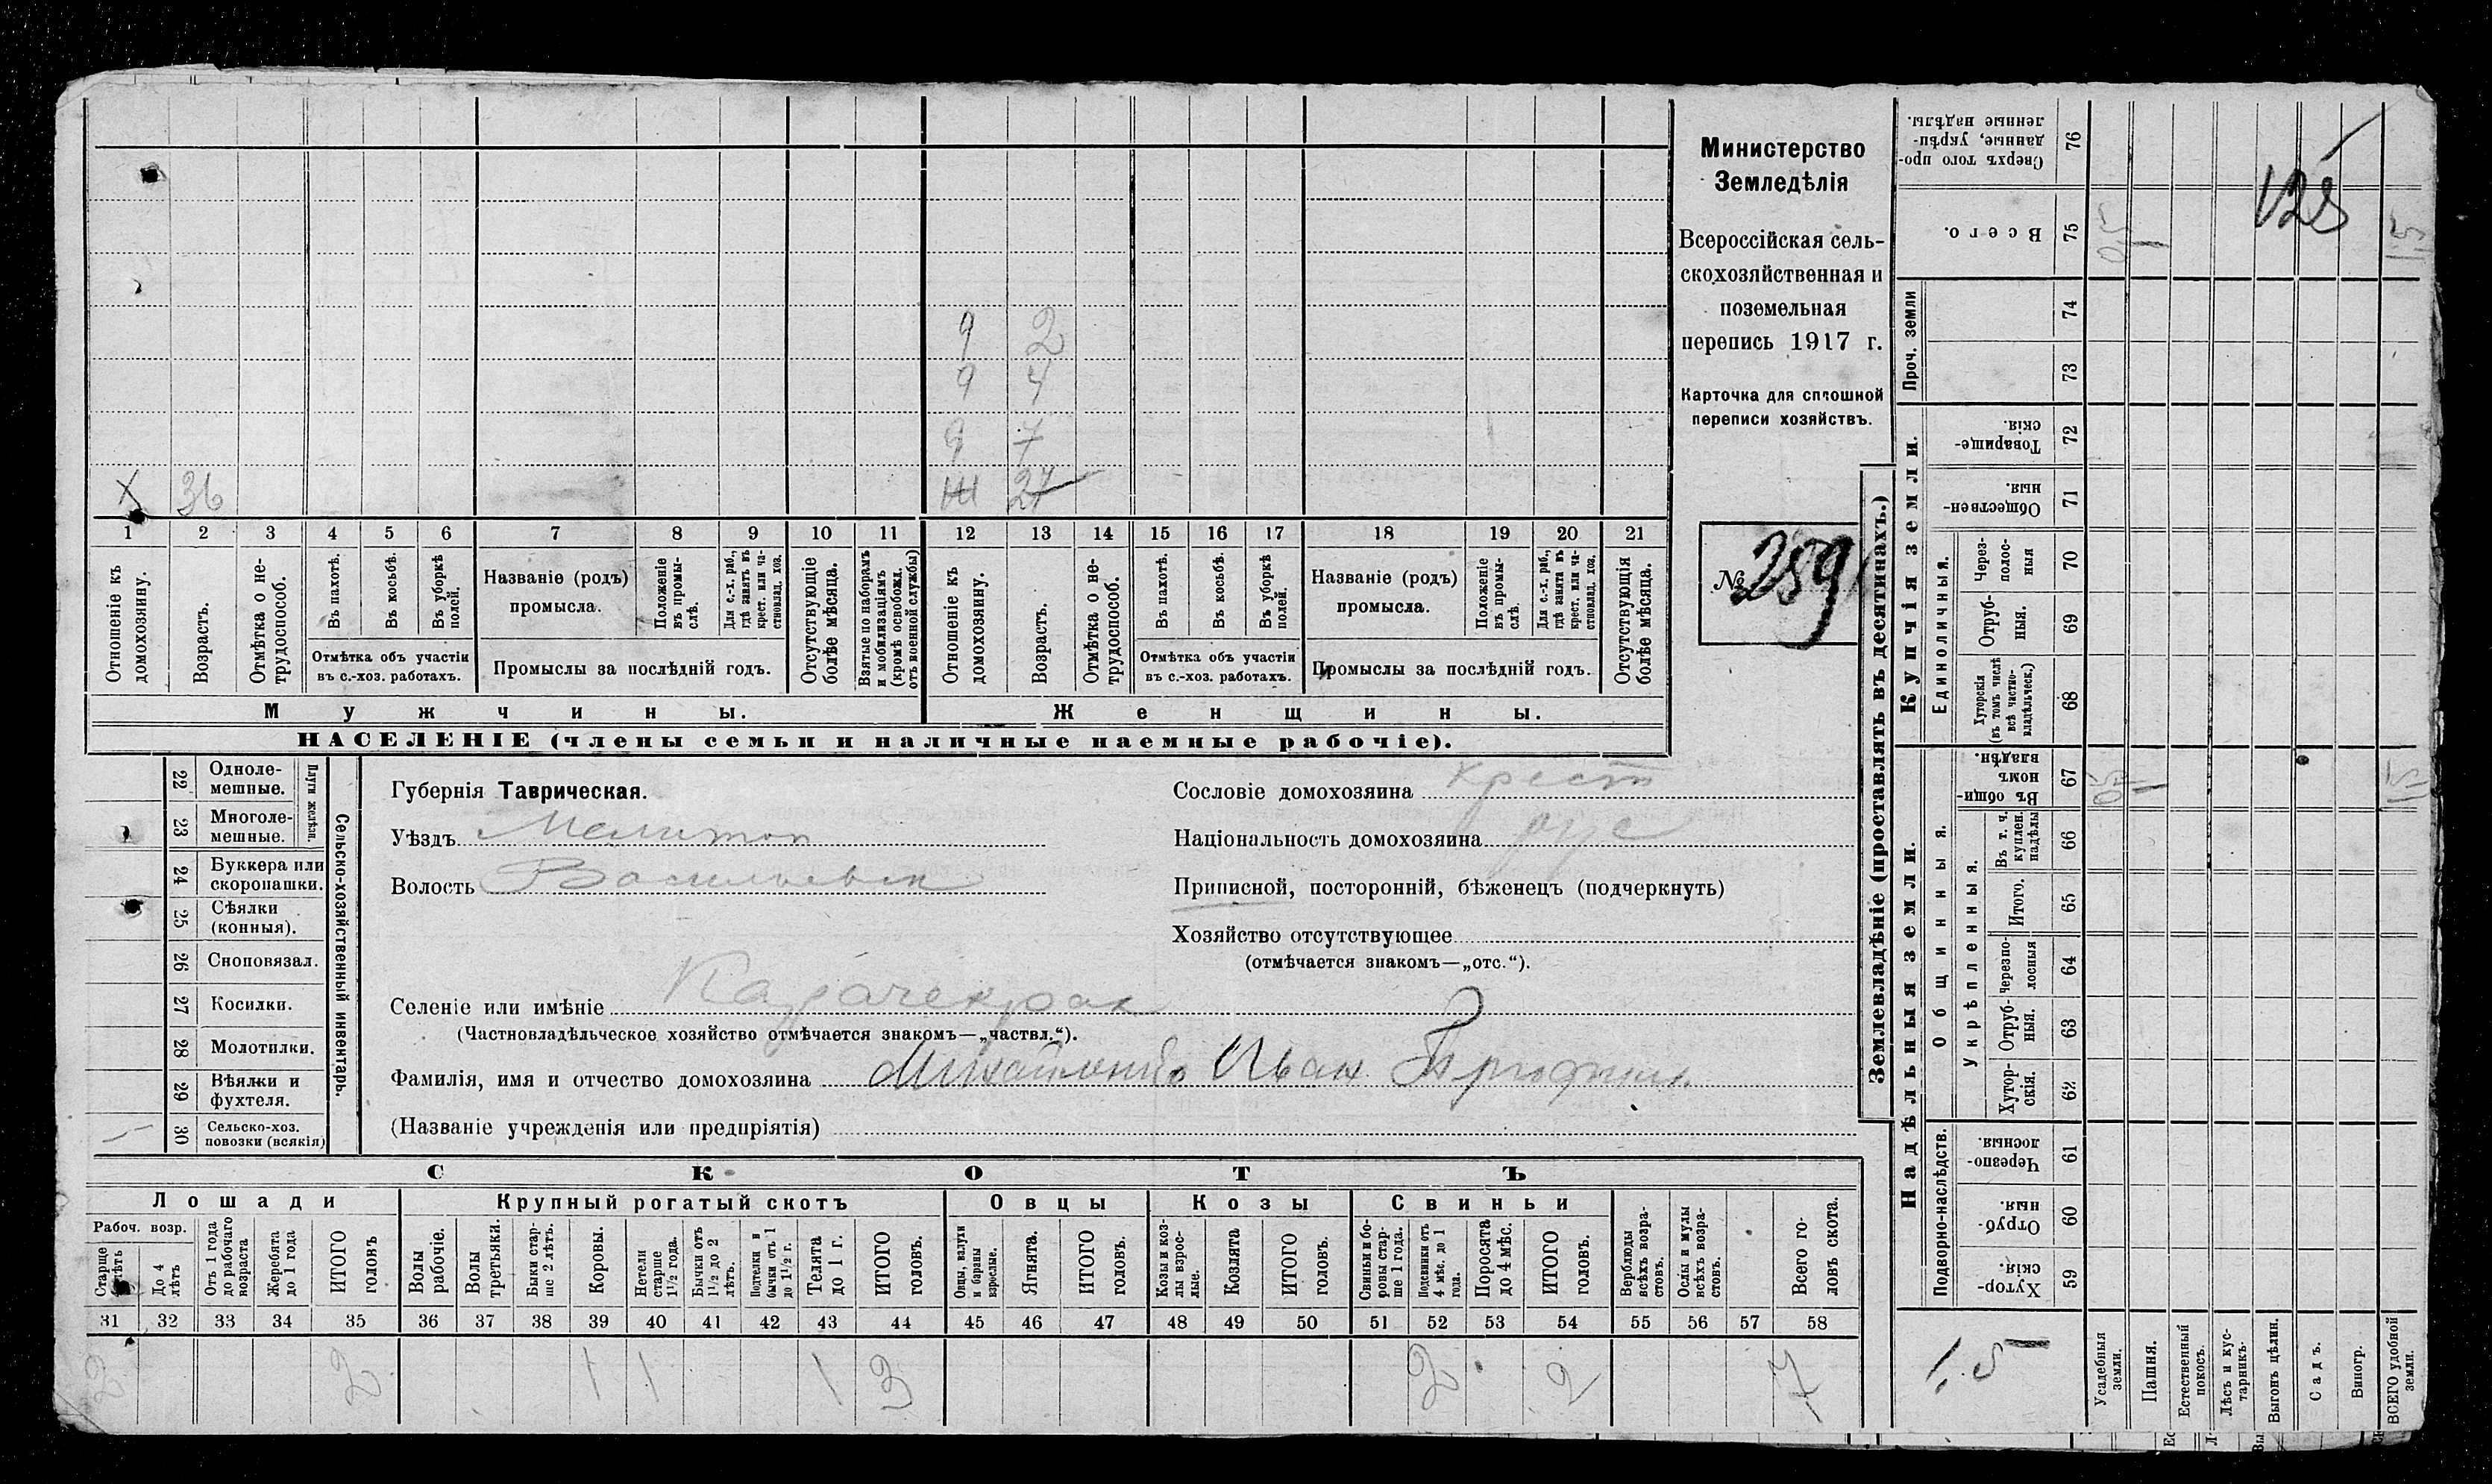 9 2
9 4
9 7
X 36 Ж 27
1 2 3 4 5 6 7 8 9 10 11 12 13 14 15 16 17 18 19 20 21
Отношеніе къ домохозяину.
Возрастъ.
Отмѣтка о нетрудоспособ.
Въ пахотѣ.
Въ косьбѣ.
Въ уборкѣ полей.
Отмѣтка объ участіи
въ с.-хоз. работахъ.
Названіе (родъ)
промысла.
Положеніе въ промыслѣ.
Для с.-х. раб., гдѣ занятъ въ крест. или частновлад. хоз.
Промыслы за послѣдній годъ.
Отсутствующіе болѣе мѣсяца.
Взятые по наборамъ и мобилизаціямъ (кромѣ освобожд. отъ военной службы)
Отношеніе къ домохозяину.
Возрастъ.
Отмѣтка о нетрудоспособ.
Въ пахотѣ.
Въ косьбѣ.
Въ уборкѣ полей.
Отмѣтка объ участіи
въ с.-хоз. работахъ.
Названіе (родъ)
промысла.
Положеніе въ промыслѣ.
Для с.-х. раб., гдѣ занята въ крест. или частновлад. хоз.
Промыслы за послѣдній годъ.
Отсутствующія болѣе мѣсяца.
Мужчины.
Женщины.
НАСЕЛЕНІЕ (члены семьи и наличные наемные рабочіе).
Министерство
Земледѣлія
Всероссійская сель-
скохозяйственная и
поземельная
перепись 1917 г.
Карточка для сплошной
переписи хозяйствъ.
№ 259
Сельско-хозяйственный инвентарь.
Плуги желѣзн.
22 Одноле-
мешные.
23 Многоле-
мешные.
24 Буккера или
скоропашки.
25 Сѣялки
(конныя).
26 Сноповязал.
27 Косилки.
28 Молотилки.
29 Вѣялки и
фухтеля.
30 Сельско-хоз.
повозки (всякія)
Губернія Таврическая.
Уѣздъ Мелитоп
Волость Васильевск
Селеніе или имѣніе
(Частновладѣльческое хозяйство отмѣчается знакомъ—„частвл.“).
Фамилія, имя и отчество домохозяина Иван
(Названіе учрежденія или предпріятія)
Сословіе домохозяина крест
Національность домохозяина рус
Приписной, посторонній, бѣженецъ (подчеркнуть)
Хозяйство отсутствующее
(отмѣчается знакомъ—„отс.“).
СКОТЪ
Лошади
Рабоч. возр.
До 4 лѣтъ
Отъ 1 года до рабочаго возраста
Жеребята до 1 года
ИТОГО головъ
Крупный рогатый скотъ
Волы рабочіе.
Волы третьяки.
Быки старше 2 лѣтъ.
Коровы.
Нетели старше 1½ года.
Бычки отъ 1½ до 2 лѣтъ.
Подтелки и бычки отъ 1 до 1½ г.
Телята до 1 г.
ИТОГО головъ.
Овцы
Овцы, валухи и бараны взрослые.
Ягнята.
ИТОГО головъ.
Козы
Козы и козлы взрослые.
Козлята
ИТОГО головъ.
Свиньи
Свиньи и боровы старше 1 года.
Подсвинки отъ 4 мѣс. до 1 года.
Поросята до 4 мѣс.
ИТОГО головъ.
Верблюды всѣхъ возрастовъ.
Ослы и мулы всѣхъ возрастовъ.
Всего головъ скота.
31 32 33 34 35 36 37 38 39 40 41 42 43 44 45 46 47 48 49 50 51 52 53 54 55 56 57 58
2 2 1 1 1 3 2 2 7
Землевладѣніе (проставлять въ десятинахъ.)
Купчія земли.
Надѣльныя земли.
Сверхъ того проданные, укрѣпленные надѣлы. 76
Всего. 75
Проч. земли
74
73
Товарищескія. 72
Общественныя. 71
Единоличныя.
Черезполосныя 70
Отрубныя. 69
Хуторскія (въ томъ числѣ всѣ частновладѣльческ.) 68
Общинныя.
Въ общинномъ владѣн. 67
Укрѣпленныя.
Въ т. ч. куплен. надѣлы 66
Итого. 65
Черезполосныя 64
Отрубныя. 63
Хуторскія. 62
Подворно-наслѣдств.
Черезполосныя. 61
Отрубныя. 60
Хуторскія. 59
Усадебныя земли.
Пашня.
Естественный покосъ.
Лѣсъ и кустарникъ.
Выгонъ цѣлин.
Садъ.
Виногр.
ВСЕГО удобной земли.
128
0,5 1 1,5
0,5 1 1,5
1.5